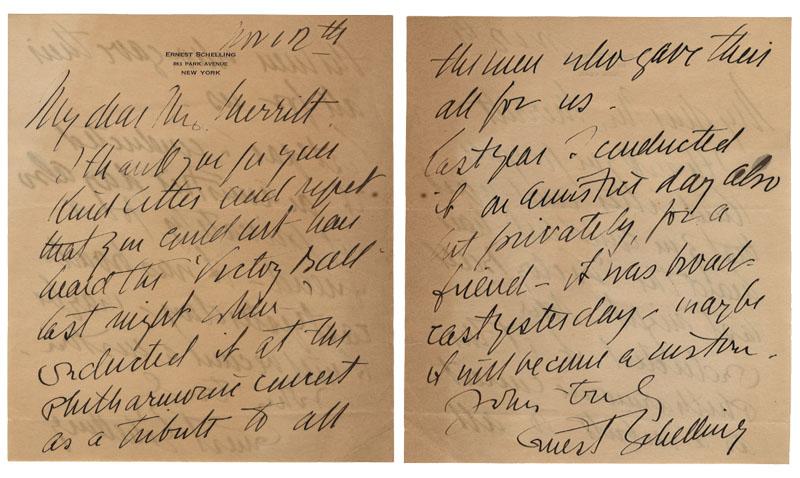 Nov 12th
ERNEST SCHELLING
863 PARK AVENUE
NEW YORK
My dear Mr. Merritt.
I thank you for your
kind letter and regret
that you could not have
heard the "Victory Ball"
last night when
conducted it at the
Philharmonic concert
as a tribute to all
the men who gave their
all for us.
Last year I conducted
it on Armistice day also
but privately, for a
friend - it was broad-
cast yesterday - maybe
it will become a custom.
Yours truly
Ernest Schelling